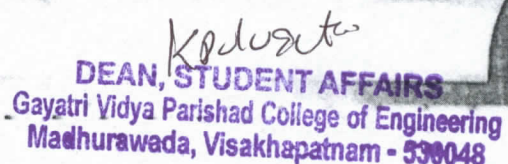 DEAN, STUDENT AFFAIRS
Gayatri Vidya Parishad College of Engineering
Madhurawada, Visakhapatnam - 530048